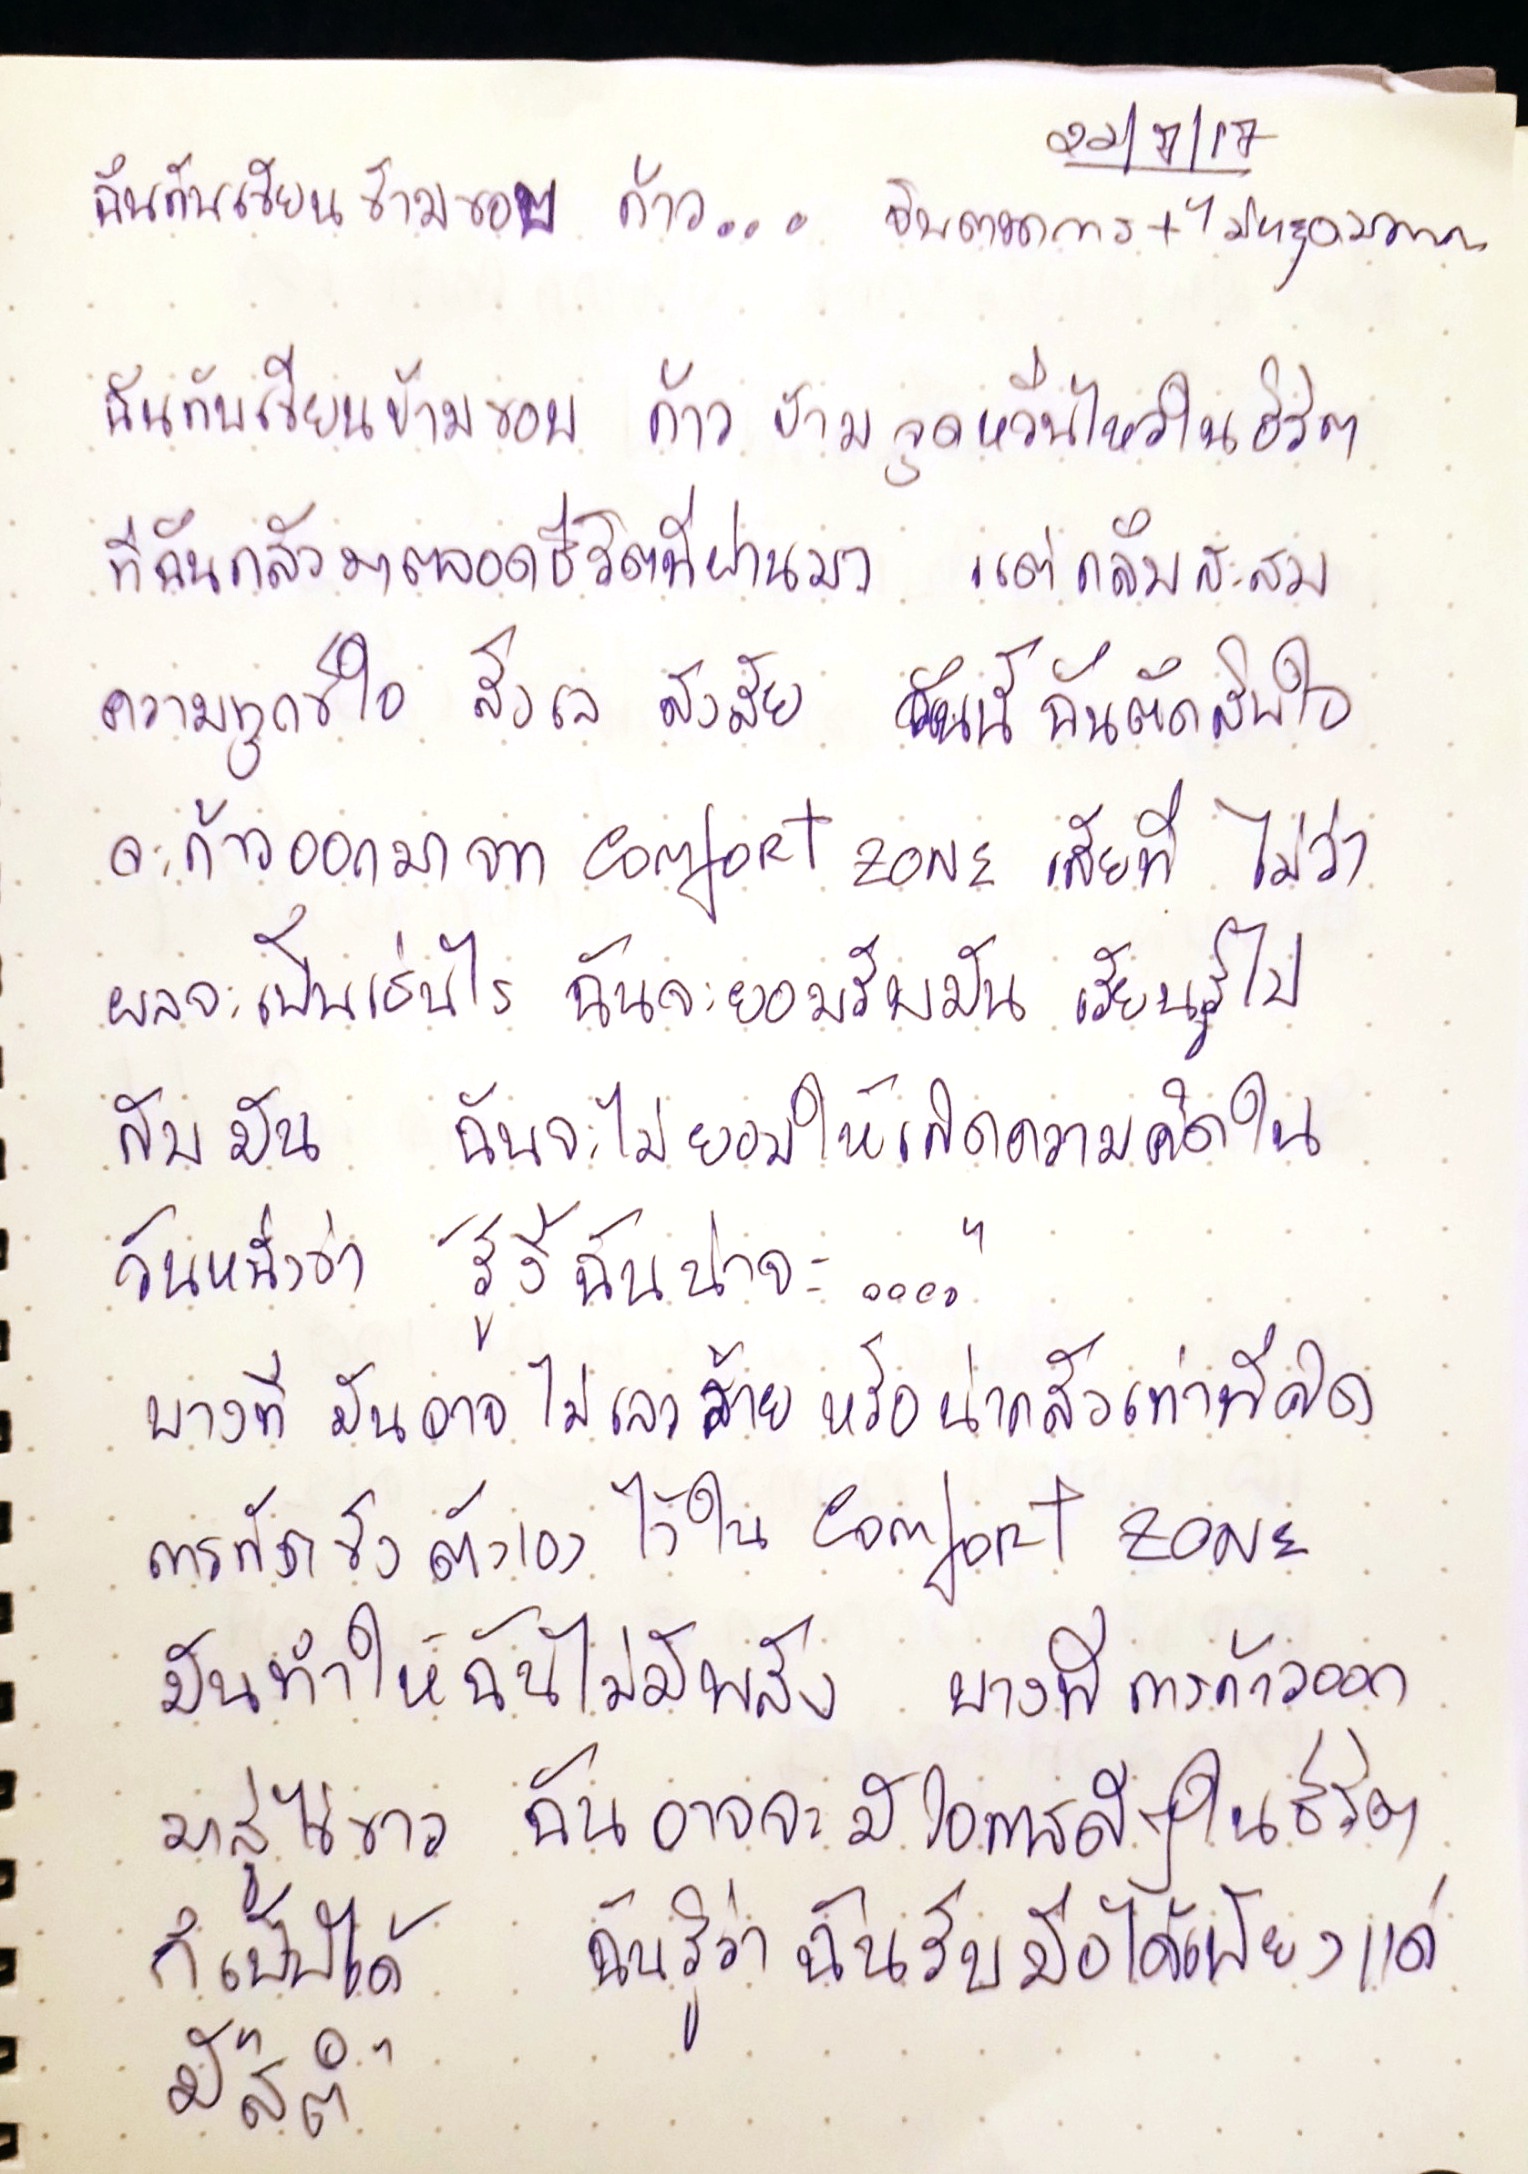 22/7/17
ฉันกับเขียนข้ามขอบ ก้าว... จินตนาการ+ไม่หยุด
ฉันกับเขียนข้ามขอบ ก้าวข้ามจุดหวั่นไหวในชีวิต
ที่ฉันกลัวมาตลอดชีวิตที่ผ่านมา แต่กลับสะสม
ความทุกข์ใจ ลังเล สงสัย วันนี้ ฉันตัดสินใจ
จะก้าวออกมาจาก Comfort ZONE เสียที ไม่ว่า
ผลจะเป็นเช่นไร ฉันจะยอมรับมัน เรียนรู้ไป
กับมัน ฉันจะไม่ยอมให้เกิดความคิดใน
วันหนึ่งว่า "รู้งี้ฉันน่าจะ....."
บางที มันอาจไม่เลวร้าย หรือน่ากลัวเท่าที่คิด
การกักขังตัวเองไว้ใน Comfort ZONE
มันทำให้ฉันไม่มีพลัง บางทีการก้าวออก
มาสู่ไข่ขาว ฉันอาจจะมีโอกาสดีๆในชีวิต
ก็เป็นได้ ฉันรู้ว่า ฉันรับมือได้เพียงแค่
มี"สติ"